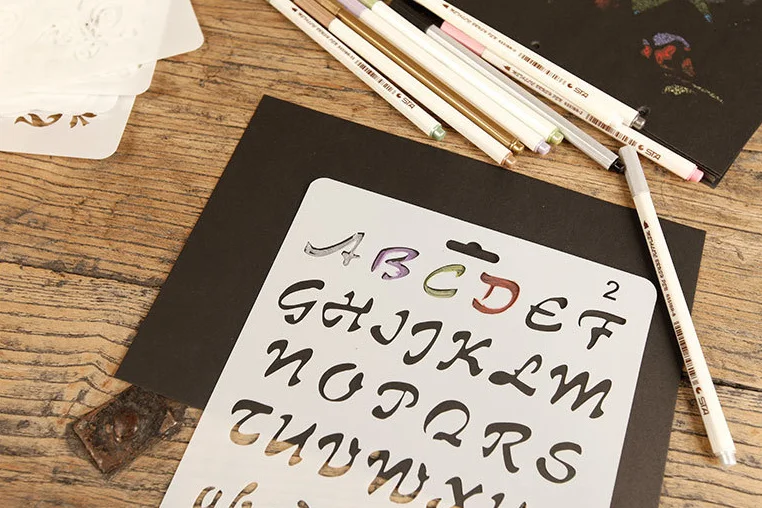 2
ABCDEF
GHIJKLM
NOPQRS
TUVWXY
STA
STA
STA
STA